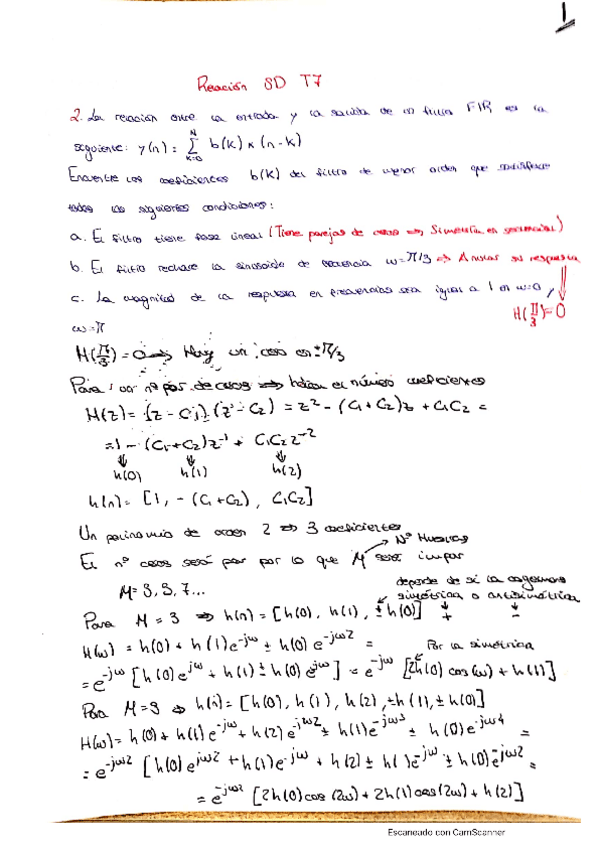 1
Relación SD T7
2. La relación entre la entrada y la salida de un filtro FIR es la
seguiente: y(n) = Σ_{k=0}^{N} b(k) x (n-k)
Encuentre los coeficientes b(k) del filtro de menor orden que satisface
todas las siguientes condiciones:
a. El filtro tiene fase lineal (Tiene parejas de ceros => Simetría en
b. El filtro rechace la sinusoide de frecuencia ω=π/3 => Anular su respuesta
c. La magnitud de la respuesta en frecuencias sea igual a 1 en ω=0,
H(π/3)=0
ω=π
H(π/3) = 0 => Hay un cero en ±π/3
Para un nº par de ceros => el número coeficientes
H(z) = (z - C1)(z - C2) = z² - (C1 + C2)z + C1C2 =
= 1 - (C1+C2)z⁻¹ + C1C2 z⁻²
h(0) h(1) h(2)
h(n) = [1, -(C1+C2), C1C2]
Un polinomio de orden 2 => 3 coeficientes
Nº Muestras
El nº ceros será par por lo que M será impar
M = 3, 5, 7...
depende de si la cogemos
simétrica o antisimétrica
+ -
Para M = 3 => h(n) = [h(0), h(1), ±h(0)]
H(ω) = h(0) + h(1)e^{-jω} ± h(0) e^{-jω2} =
Por la simétrica
= e^{-jω} [h(0) e^{jω} + h(1) ± h(0) e^{jω}] = e^{-jω} [2h(0) cos(ω) + h(1)]
Para M=9 => h(n) = [h(0), h(1), h(2), ±h(1), ±h(0)]
H(ω) = h(0) + h(1) e^{-jω} + h(2) e^{-jω2} ± h(1)e^{-jω3} ± h(0)e^{-jω4} =
= e^{-jω2} [h(0)e^{jω2} + h(1)e^{-jω} + h(2) ± h( )e^{-jω} ± h(0)e^{-jω2} =
= e^{-jω2} [2h(0)cos(2ω) + 2h(1)cos(2ω) + h(2)]
Escaneado con CamScanner